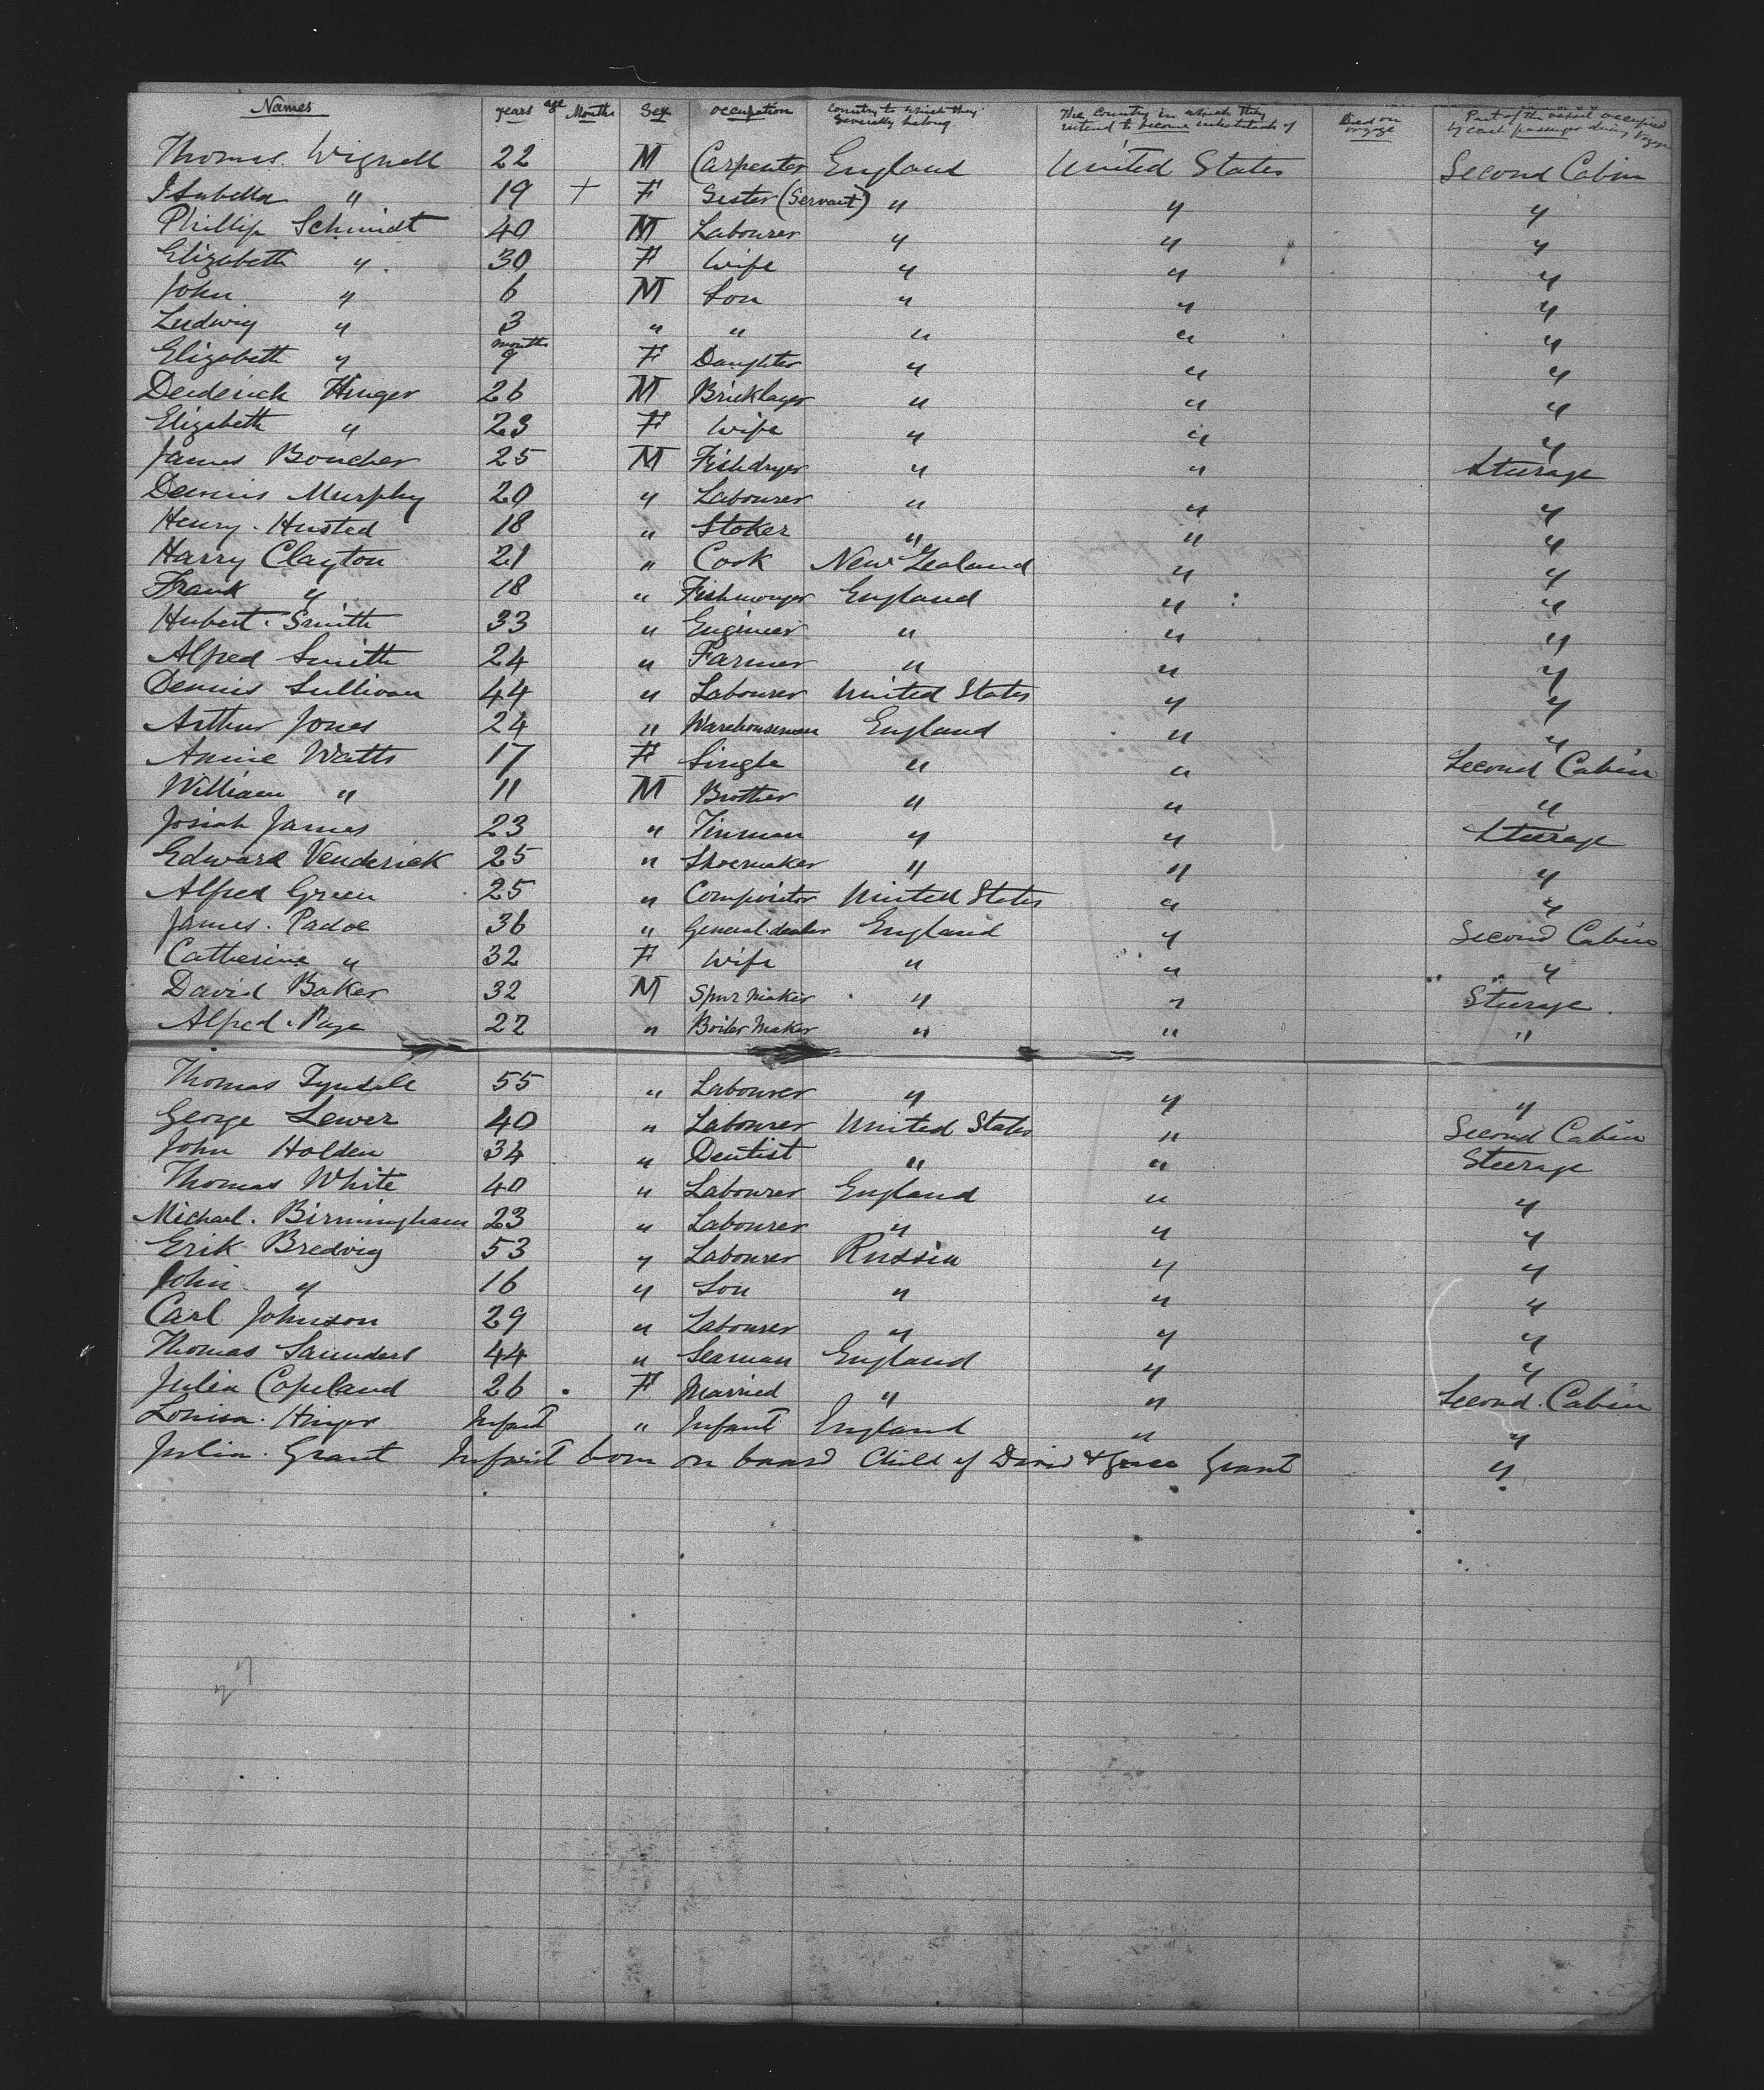 Names years age Months Sex occupation Country to which they severally belong The Country in which they intend to become inhabitants of Died on voyage Part of the vessel occupied by each passenger during Voyage
Thomas Wignell 22 M Carpenter England United States Second Cabin
Isabella " 19 + F Sister (Servant) " " "
Phillip Schmidt 40 M Labourer " " "
Elizabeth " 30 F Wife " " "
John " 6 M Son " " "
Ludwig " 3 " " " " "
Elizabeth " 9 months F Daughter " " "
Dederick Hinger 26 M Bricklayer " " "
Elizabeth " 23 F Wife " " "
James Boucher 25 M Fishdryer " " Steerage
Dennis Murphy 20 " Labourer " " "
Henry Husted 18 " Stoker " " "
Harry Clayton 21 " Cook New Zealand " "
Frank " 18 " Fishmonger England " "
Hubert Smith 33 " Engineer " " "
Alfred Smith 24 " Farmer " " "
Dennis Sullivan 44 " Labourer United States " "
Arthur Jones 24 " Warehouseman England " "
Annie Watts 17 F Single " " Second Cabin
William " 11 M Brother " " "
Josiah James 23 " Tinman " " Steerage
Edward Venderick 25 " Shoemaker " " "
Alfred Green 25 " Compositor United States " "
James Padoe 36 " General dealer England " Second Cabin
Catherine " 32 F Wife " " "
David Baker 32 M Spur Maker " " Steerage
Alfred Page 22 " Boiler Maker " " "
Thomas Tyndale 55 " Labourer " " "
George Lewer 40 " Labourer United States " Second Cabin
John Holden 34 " Dentist " " Steerage
Thomas White 40 " Labourer England " "
Michael Birmingham 23 " Labourer " " "
Erik Bredvig 53 " Labourer Russia " "
John " 16 " Son " " "
Carl Johnson 29 " Labourer " " "
Thomas Saunders 44 " Seaman England " "
Julia Copeland 26 F Married " " Second Cabin
Louisa Hinger Infant " Infant England " "
Julia Grant Infant born on board Child of David & Grace Grant "